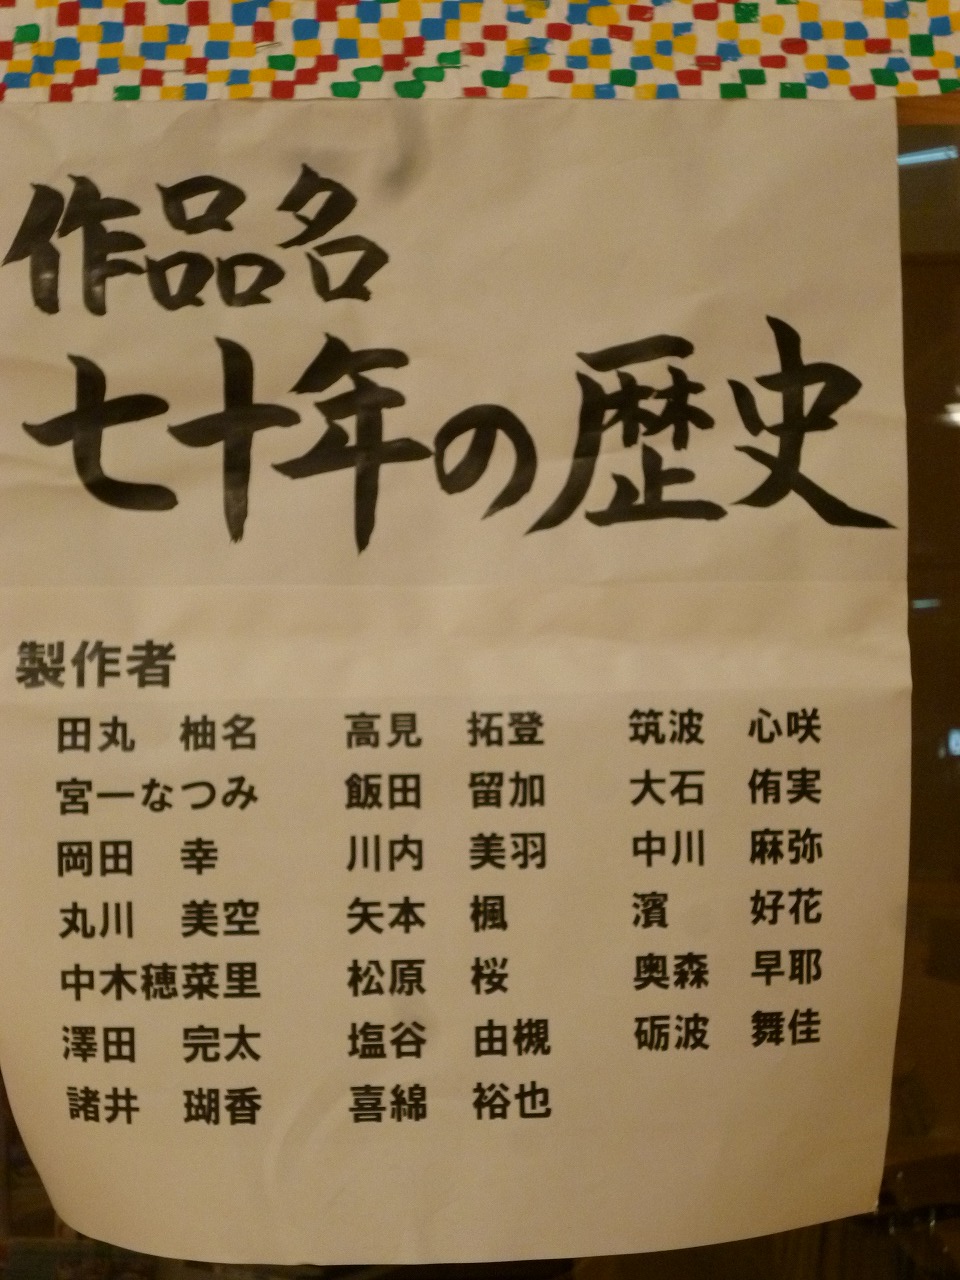 作品名
七十年の歴史
製作者
田丸　柚名　高見　拓登　筑波　心咲
宮一なつみ　飯田　留加　大石　侑実
岡田　幸　川内　美羽　中川　麻弥
丸川　美空　矢本　楓　濱　好花
中木穂菜里　松原　桜　奥森　早耶
澤田　完太　塩谷　由槻　砺波　舞佳
諸井　瑚香　喜綿　裕也